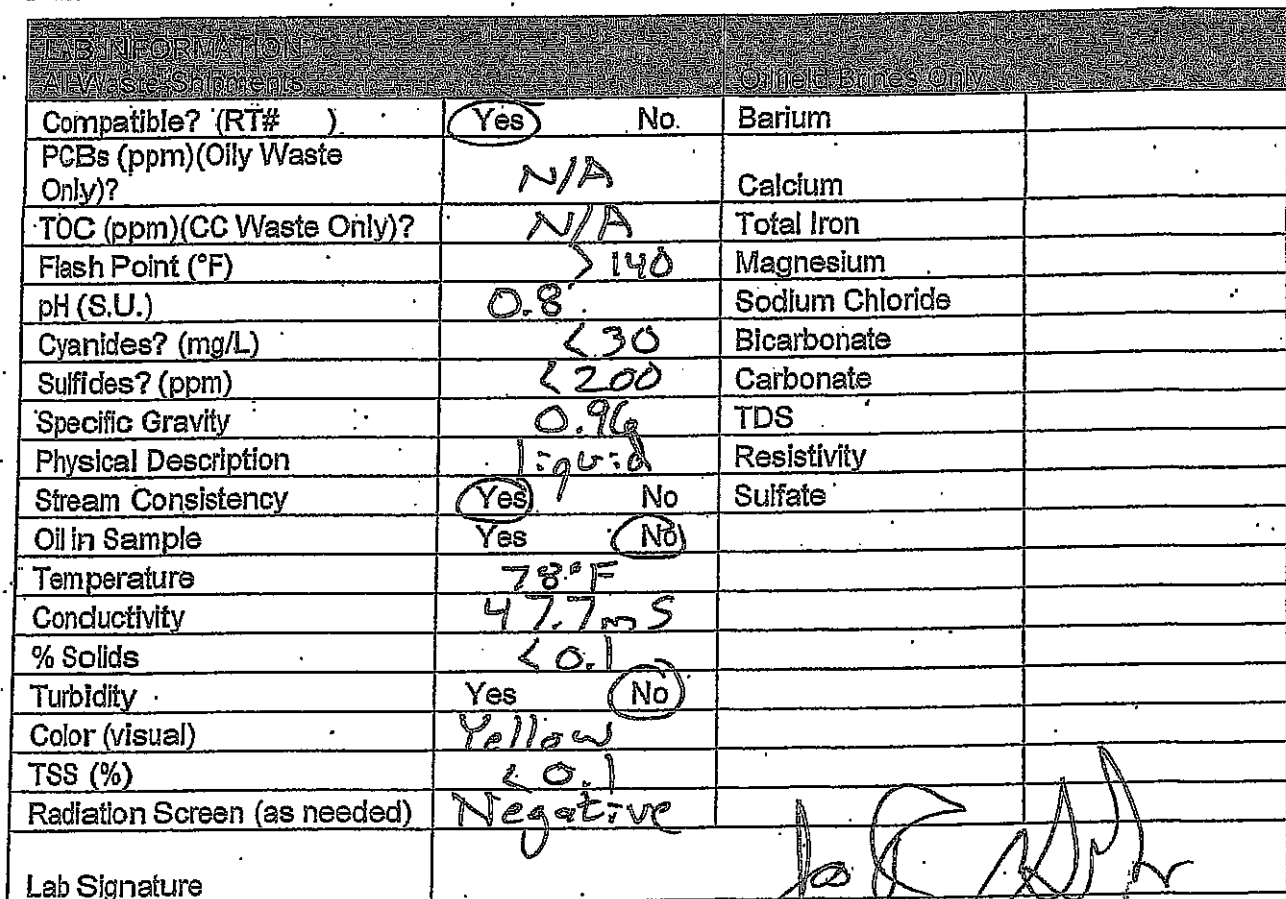 LAB INFORMATION
All Waste Shipments Oilfield Brines Only
Compatible? (RT# ) Yes No. Barium
PCBs (ppm)(Oily Waste
Only)? N/A Calcium
TOC (ppm)(CC Waste Only)? N/A Total Iron
Flash Point (°F) >140 Magnesium
pH (S.U.) 0.8 Sodium Chloride
Cyanides? (mg/L) <30 Bicarbonate
Sulfides? (ppm) <200 Carbonate
Specific Gravity 0.96 TDS
Physical Description liquid Resistivity
Stream Consistency Yes No Sulfate
Oil in Sample Yes No
Temperature 78°F
Conductivity 47.7mS
% Solids <0.1
Turbidity Yes No
Color (visual) Yellow
TSS (%) <0.1
Radiation Screen (as needed) Negative
Lab Signature